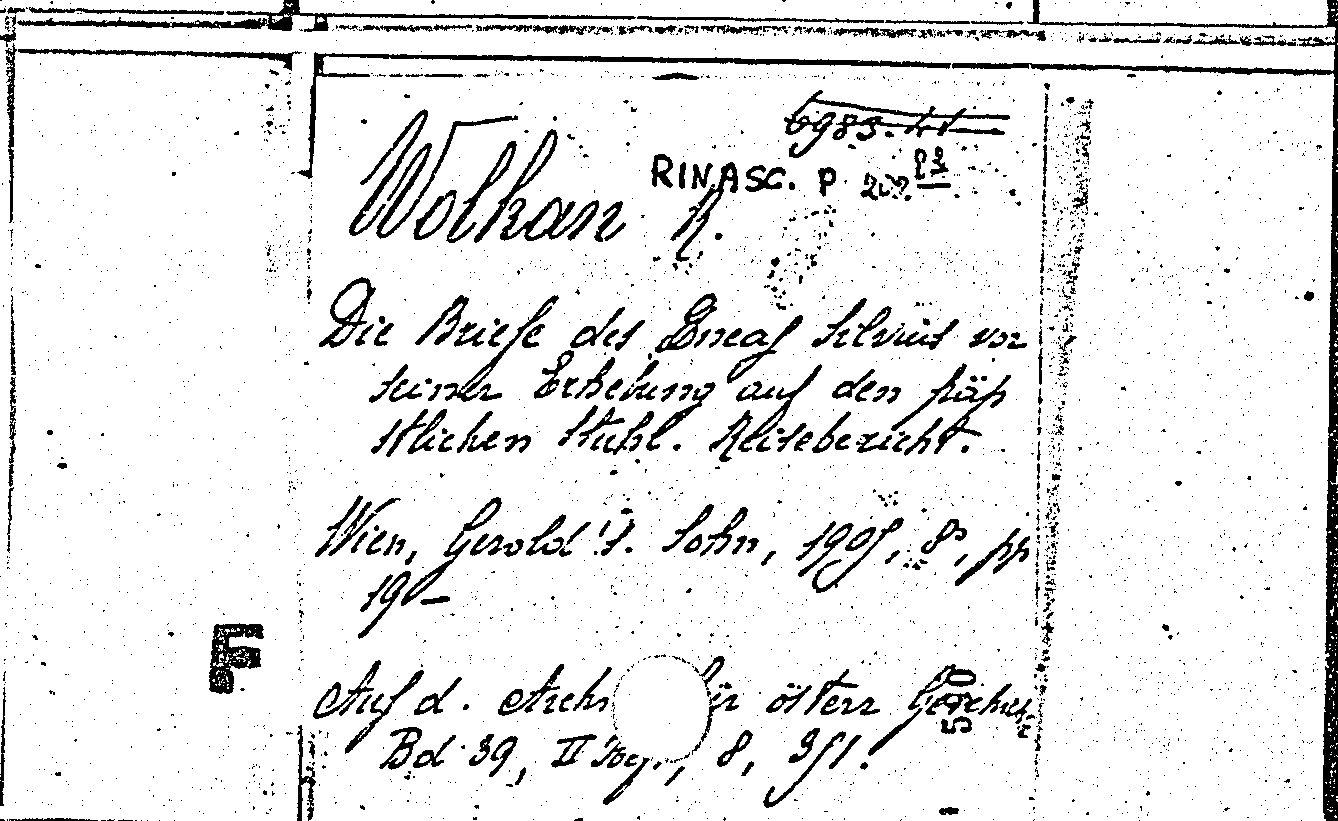 6983.
RINASC. P
Wolkan R.
Die Briefe des Eneas Silvius vor
seiner Erhebung auf den päp
stlichen Stuhl. Reisebericht.
Wien, Gerold's. Sohn, 1905, 8°, pp
19 —
F
Aus d. Archi für österr Geschich
Bd 39, II 8, 351.